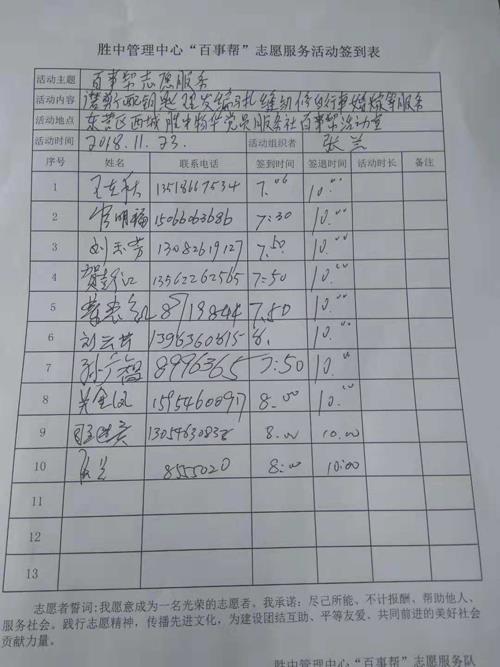 胜中管理中心“百事帮”志愿服务活动签到表
活动主题 百事帮志愿服务
活动内容 理发 编马扎 维修自行车 等服务
活动地点 东营区西城胜中物华党员服务社百事帮活动室
活动时间 2018.11.23. 活动组织者 张兰
序号 姓名 联系电话 签到时间 签退时间 活动时长 备注
1 13518667534 7.06 10.00
2 常明福 15066063686 7:30 10.00
3 刘玉芳 13082619127 7.50 10.00
4 13562262565 7:50 10.00
5 8719844 7.50 10.00
6 刘云芳 10.00
7 孙广智 8996365 7:50 10.00
8 8.00 10.00
9 8.00 10.00
10 张兰 8555020 8:00 10:00
11
12
13
志愿者誓词:我愿意成为一名光荣的志愿者。我承诺：尽己所能、不计报酬、帮助他人、
服务社会。践行志愿精神，传播先进文化，为建设团结互助、平等友爱、共同前进的美好社会
贡献力量。
胜中管理中心“百事帮”志愿服务队